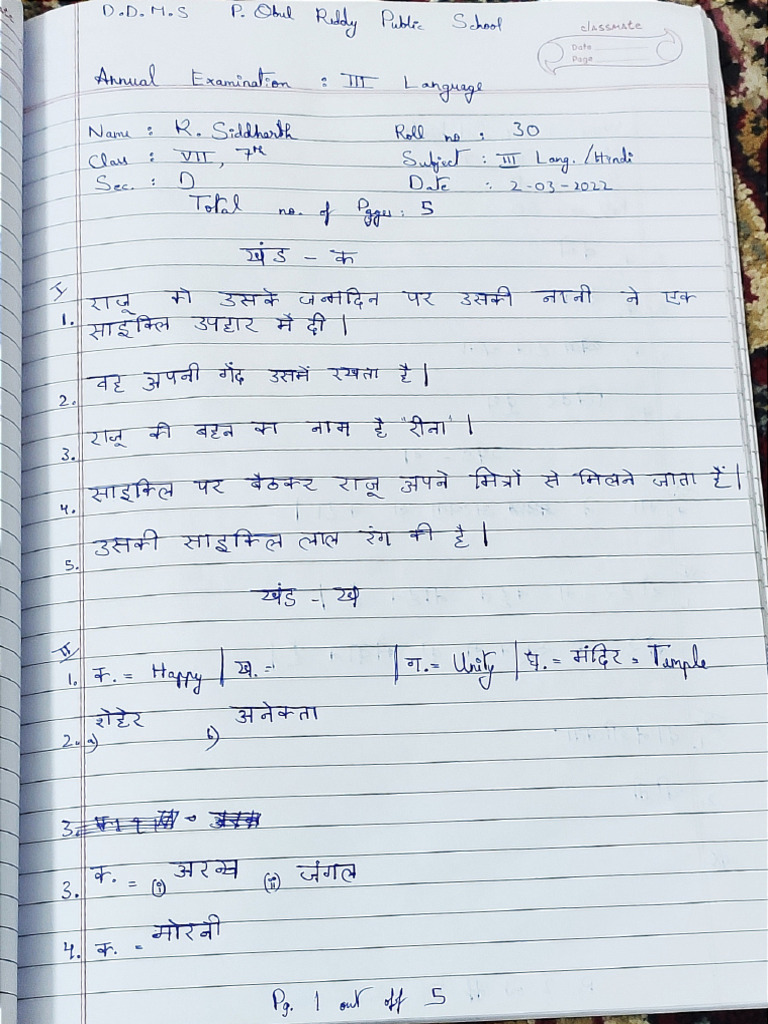 D.D.M.S P. Obul Reddy Public School
classmate
Date
Page
Annual Examination : III Language
Name : R. Siddharth Roll no : 30
Class : VII, 7th Subject : III Lang. / Hindi
Sec. : D Date : 2-03-2022
Total no. of Pages : 5
खंड - क
I
1. राजू को उसके जन्मदिन पर उसकी नानी ने एक
साइकिल उपहार में दी |
2. वह अपनी गेंद उसमें रखता है |
3. राजू की बहन का नाम है 'रीना' |
4. साइकिल पर बैठकर राजू अपने मित्रों से मिलने जाता हैं |
5. उसकी साइकिल लाल रंग की है |
खंड - ख
II
1. क. = Happy | ख. = | ग. = Unity | घ. = मंदिर = Temple
2. a) शेहेर b) अनेकता
3.
3. क. = (i) अरन्य (ii) जंगल
4. क. = मोरनी
Pg. 1 out off 5